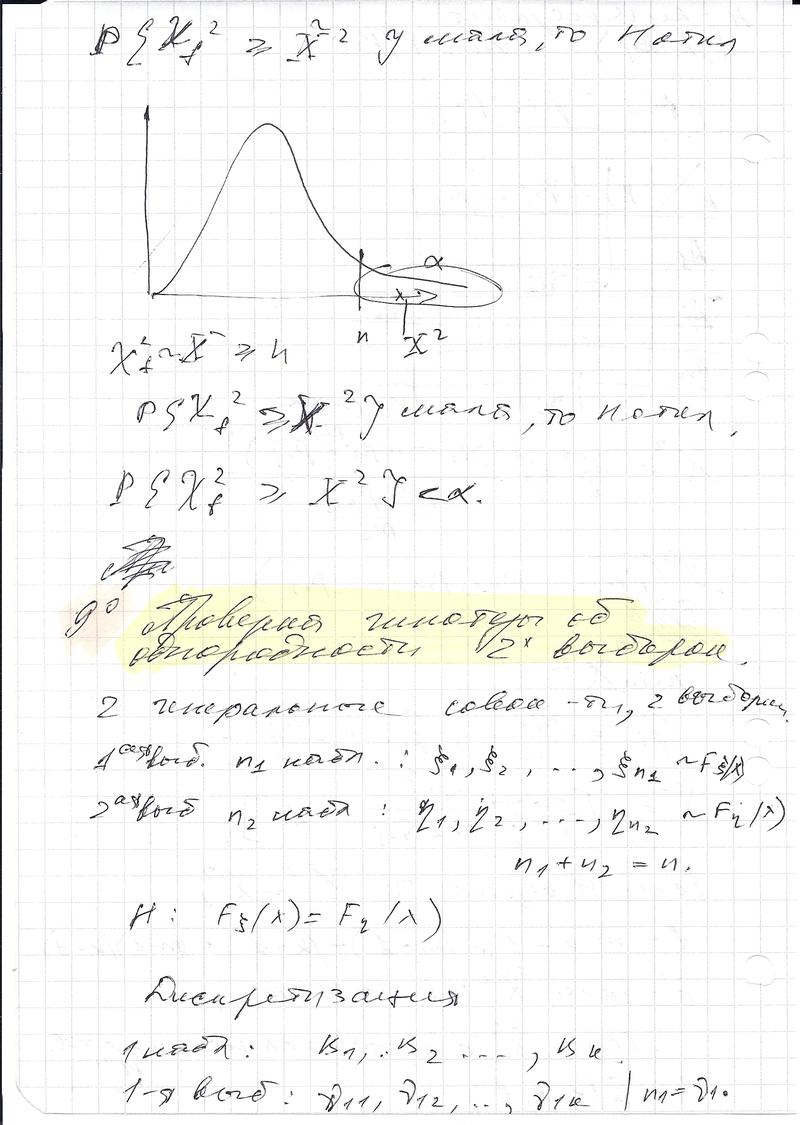 P{χ_f² ≥ X̃² } мала, то H откл
α
x
n X²
χ_f² ~ X² ≥ h
P{χ_f² ≥ X²} мала, то H откл.
P{χ_f² ≥ X²} < α.
9° Проверка гипотезы об
однородности 2х выборок.
2 генеральные совок-ти, 2 выборки.
1ая выб. n₁ набл. : ξ₁, ξ₂, ..., ξn₁ ~ Fξ(x)
2ая выб n₂ набл : η₁, η₂, ..., ηn₂ ~ Fη(x)
n₁ + n₂ = n.
H: Fξ(x) = Fη(x)
Дискретизация
1 набл: B₁, B₂ ..., Bк.
1-я выб: ν₁₁, ν₁₂, .., ν₁к | n₁ = ν₁•